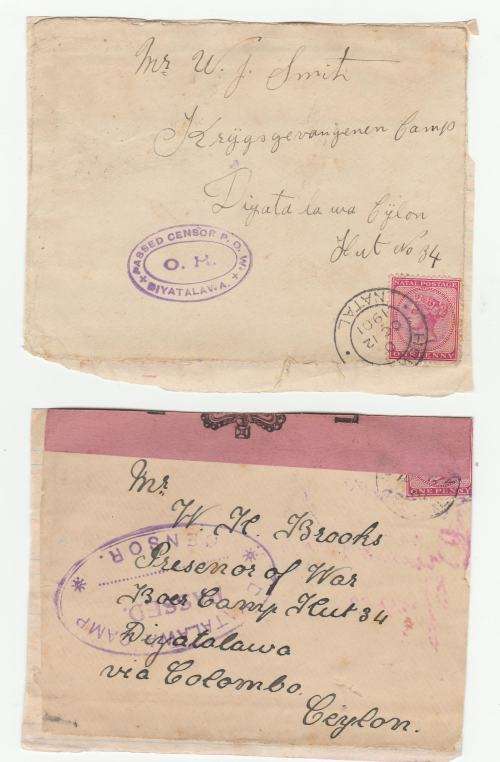 Mr W. J. Smith
Krygsgevangenen Camp
Diyatalawa Cylon
Hut No 34
PASSED CENSOR P.O.W.
O. H.
DIYATALAWA.
NATAL
1901
NATAL POSTAGE
ONE PENNY
ONE PENNY
Mr
W. H Brooks
Presenor of War
Boer Camp Hut 34
Diyatalawa
via Colombo.
Ceylon.
PASSED.
CENSOR.
TALAWA CAMP